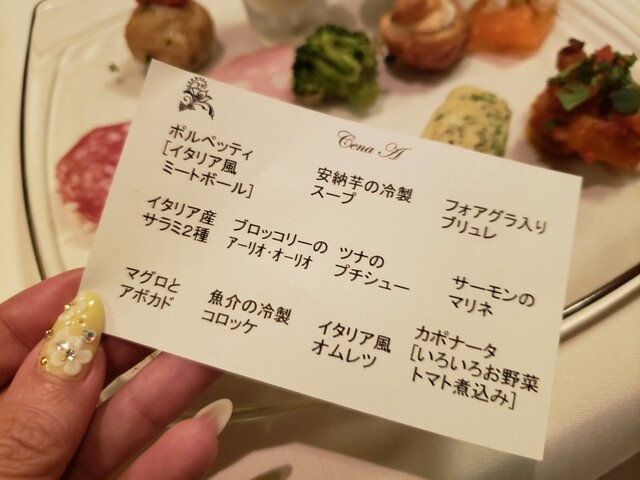 Cena A
ポルペッティ
[イタリア風
ミートボール]
安納芋の冷製
スープ
フォアグラ入り
ブリュレ
イタリア産
サラミ2種
ブロッコリーの
アーリオ・オーリオ
ツナの
プチシュー
サーモンの
マリネ
マグロと
アボカド
魚介の冷製
コロッケ
イタリア風
オムレツ
カポナータ
[いろいろお野菜
トマト煮込み]